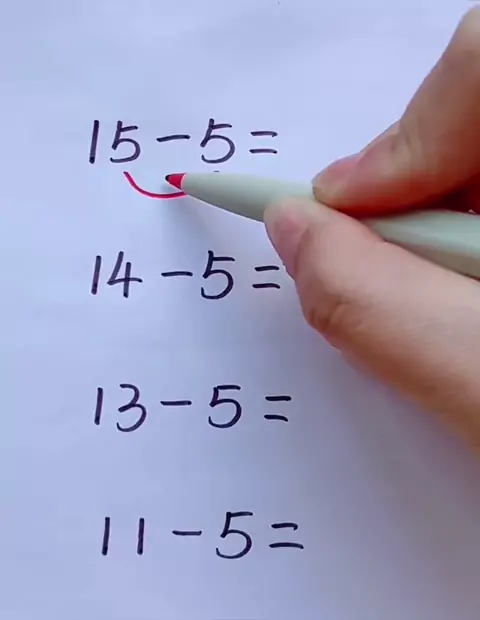 15-5=
14-5=
13-5=
11-5=